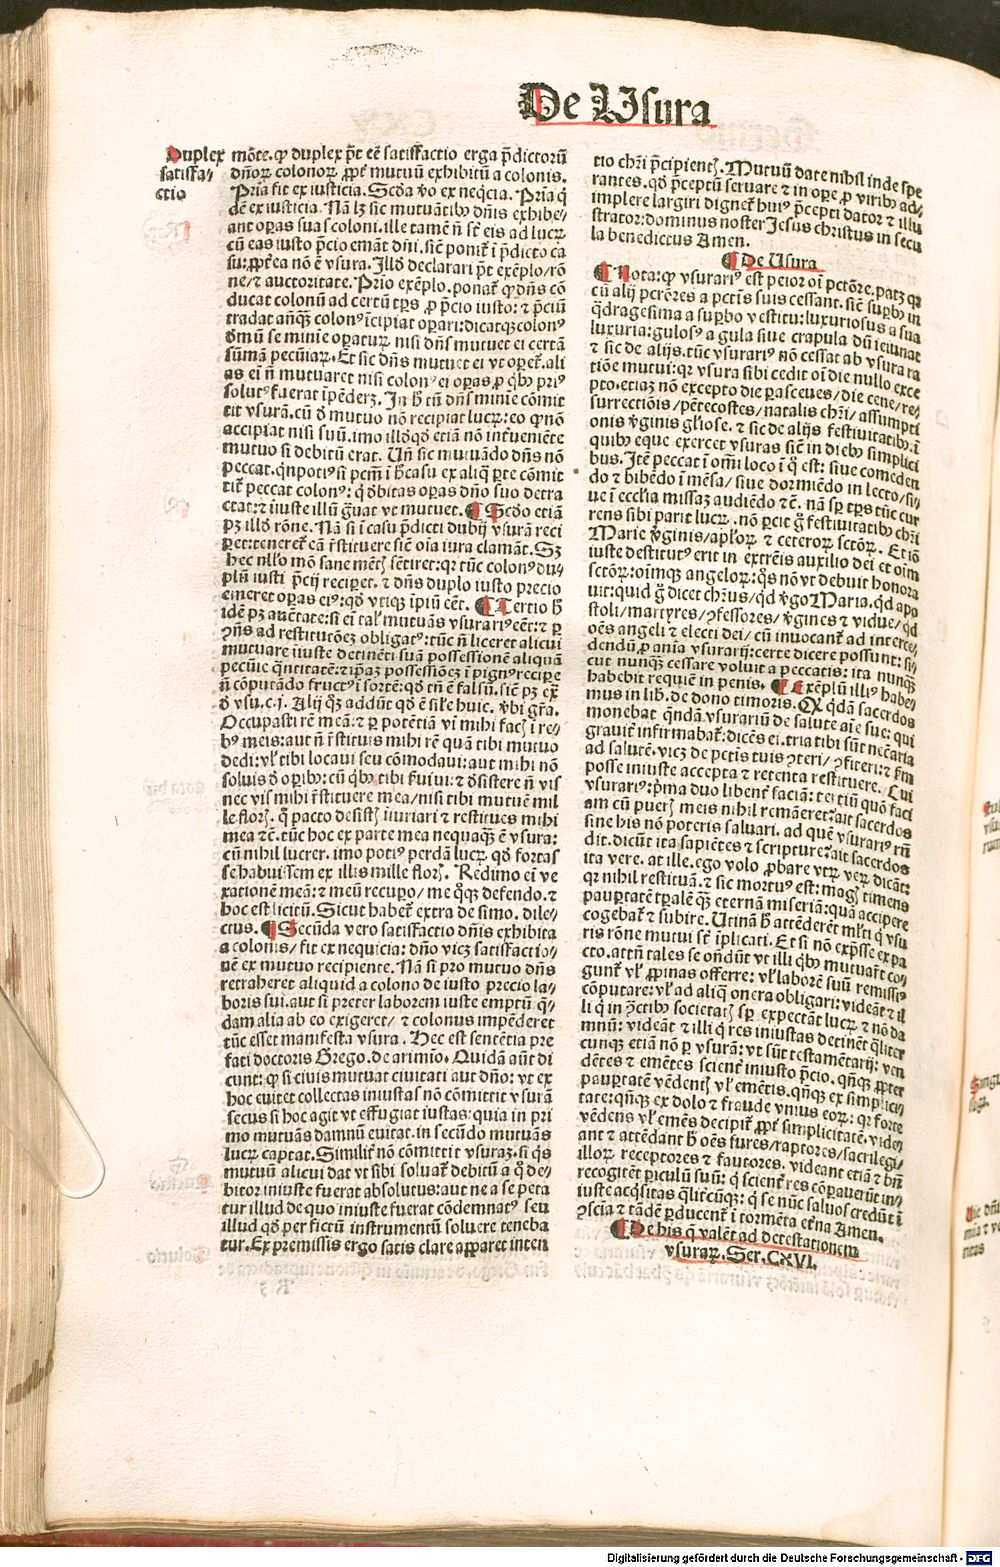 De Usura
Duplex
satisfa⸗
ctio
mōte. ꝙ duplex pōt eē satisfactio erga p̄dictorū
dn̄orꝝ colonorꝝ, ꝓpt̄ mutuū exhibitū a colonis.
Pria fit ex iusticia. Scd̄a ꝟo ex neq̄cia. Pria q̄
dē ex iusticia. Nā lꝫ sic mutuātibꝰ dn̄is exhibe/
ant oꝑas suas coloni. ille tamē n̄ st̄ eis ad lucꝝ
cū eas iusto p̄cio emāt dn̄i. sic̄ ponit̄ ī p̄dicto ca
su: ꝓpt̄ea nō ē vsura. Illd̄ declarari pōt exēplo/rō
ne/⁊ auctoritate. Prio exēplo. ponat̄ ꝙ dn̄s cō
ducat colonū ad certū tꝑs ꝓ p̄cio iusto: ⁊ p̄ciū
tradat anq̄ꝫ colonꝰ īcipiat oꝑari: dicatqꝫ colonꝰ
dn̄s mutuet ei certā
sūmā pecūiaꝝ. Et sic dn̄s mutuet ei vt oꝑet̄. ali
as ei n̄ mutuaret nisi colonꝰ ei oꝑas, ꝓ qͥbꝰ priꝰ
solutꝰ fuerat īpēderꝫ. In h̄ tū dn̄s minīe cōmit
tit vsurā. cū d̄ mutuo nō recipiat lucꝝ: eo ꝙ nō
accipiat nisi suū. imo illd̄ qd̄ etiā nō int̄ueniēte
mutuo si debitū erat. Un̄ sic mutuādo dn̄s nō
peccat. qn̄ potiꝰ si pctm̄ ī h̄ casu ex aliq̄ ꝑte cōmit
tit̄ peccat colonꝰ: q̄ d̄bitas oꝑas dn̄o suo detra
ctat: ⁊ īiuste illū ḡuat vt mutuet. ¶ Scd̄o etiā
pꝫ illd̄ rōne. Nā si ī casu p̄dicti dubij vsurā reci
ꝑet: teneret̄ eā r̄stituere sic̄ oīa iura clamāt. Sꝫ
hec nllo mō sane mētꝭ sētiret: qꝛ tūc colonꝰ du⸗
plū iusti p̄cij reciꝑet. ⁊ dn̄s duplo iusto precio
emeret oꝑas eiꝰ: qd̄ vtiqꝫ īpiū eēt. ¶ Tertio h̄
idē pꝫ auc̄tate: si ei tal̄ mutuās vsurariꝰ eēt: ⁊ ꝑ
ꝯn̄s ad restitutōeꝫ obligatꝰ: tūc n̄ liceret alicui
mutuare īiuste detinēti suā possessionē aliquā
pecūie q̄ntitatē: ⁊ ip̄aꝫ possessiōeꝫ ī pignꝰ recipe
n̄ cōputādo fructꝰ ī sortē: qd̄ tn̄ ē falsū. sic̄ pꝫ ex̄
d̄ vsu. c.j. Alij qͦꝫ addūt qd̄ ē sil̄e huic. ꝟbi gr̄a.
Occupasti rē meā: ⁊ ꝑ potētiā vī mihi facꝭ ī re⸗
bꝰ meis: aut n̄ r̄stituis mihi rē quā tibi mutuo
dedi: vl̓ tibi locaui seu cōmodaui: aut mihi nō
soluis d̄ oꝑibꝰ: cū qͥbꝰ tibi f̄uiui: ⁊ d̄sistere n̄ vis
nec vis mihi r̄stituere mea/ nisi tibi mutuē mil
le florꝭ. q̄ pacto desistꝭ īiuriari ⁊ restitues mihi
mea ⁊c̄. tūc hoc ex parte mea nequaqꝫ ē vsura:
cū nihil lucrer. imo potiꝰ perdā lucꝝ qd̄ fortas
se habuissem ex illis mille florꝭ. Redimo eī ve
xationē meā: ⁊ meū recuꝑo/ me qͦqꝫ defendo. ⁊
hoc est licitū. Sicut habet̄ extra de simo. dile⸗
ctus. ¶ Secūda vero satisfactio dn̄is exhibita
a colonis/ fit ex nequicia: dn̄o vicꝫ satisfactio⸗
nē ex mutuo recipiente. Nā si pro mutuo dn̄s
retraheret aliquid a colono de iusto precio la⸗
boris sui. aut si preter laborem iuste emptū q̄⸗
dam alia ab eo exigeret/ ⁊ colonus impēderet
tūc esset manifesta vsura. Hec est sentētia pre
fati doctoris Grego. de arimīo. Quidā aūt di
cunt: ꝙ si ciuis mutuat ciuitati aut dn̄o: vt ex
hoc euitet collectas iniustas nō committit vsurā
secus si hoc agit vt effugiat iustas: quia in pri
mo mutuās damnū euitat. in secūdo mutuās
lucꝝ captat. Similit̄ nō cōmittit vsuraꝫ. si qͥs
mutuū alicui dat vt sibi soluat̄ debitū a q̄ de⸗
bitor iniuste fuerat absolutus: aut ne a se peta
tur illud de quo iniuste fuerat cōdemnatꝰ seu
illud qd̄ per fictū instrumentū soluere teneba
tur. Ex premissis ergo satis clare apparet inten
tio chr̄i p̄cipientꝭ. Mutuū date nihil inde spe
rantes. qd̄ p̄ceptū seruare ⁊ in oꝑe ꝓ viribꝰ ad⸗
implere largiri dignet̄ huiꝰ p̄cepti dator ⁊ illu
strator: dominus noster Jesus christus in secu
la benedictus Amen.
¶ De Usura
¶ Nota: ꝙ vsurariꝰ est peior oī pctōre. patꝫ qꝛ
cū alij pctōres a pctīs suis cessant. sic̄ suꝑbꝰ in
q̄dragesima a suꝑbo vestitu: luxuriosus a sua
luxuria: gulosꝰ a gula siue crapula dū ieiunat
⁊ sic de alijs. tūc vsurariꝰ nō cessat ab vsura ra
tiōe mutui: qꝛ vsura sibi cedit oī die nullo exce
pto. etiaꝫ nō excepto die parasceues/ die cene/ re⸗
surrectiōis/ pētecostes/ natalis chr̄i/ assumpti
onis ꝟginis gl̄iose. ⁊ sic de alijs festiuitatibꝰ. ī
quibꝰ eque exercet vsuras sic̄ in diebꝰ simplici
bus. Itē peccat ī om̄i loco ī q̄ est: siue comeden
do ⁊ bibēdo ī mēsa/ siue dormiēdo in lecto/ si⸗
ue ī eccl̄ia missaꝫ audiēdo ⁊c̄. nā sꝑ tꝑs tūc cur
rens sibi parit lucꝝ. nō ꝑcit ḡ festiuitatibꝰ chr̄i
Marie ꝟginis/ apl̄oꝝ ⁊ ceteroꝝ sctōꝝ. Et iō
iuste destitutꝰ erit in extrēis auxilio dei et oīm
sctōꝝ: oīmqꝫ angeloꝝ: qͦs nō vt debuit honora
uit: quid ḡ dicet chr̄us/ qd̄ ꝟgo Maria. qd̄ apo
stoli/ martyres/ ꝯfessores/ ꝟgines ⁊ vidue/ qd̄
oēs angeli ⁊ electi dei/ cū inuocant̄ ad interce⸗
dendū ꝓ anīa vsurarij: certe dicere possunt: si⸗
cut nunqꝫ cessare voluit a peccatis: ita nunqꝫ
habebit requiē in penis. ¶ Exēplū illiꝰ habe⸗
mus in lib. de dono timoris. Qd̄ qͥdā sacerdos
monebat quēdā vsurariū de salute aīe sue: qui
grauit̄ infirmabat̄: dicēs ei. tria tibi sūt nec̄aria
ad salutē. vicꝫ de pctīs tuis ꝯteri/ ꝯfiteri: ⁊ fm̄
posse iniuste accepta ⁊ retenta restituere. Cui
vsurariꝰ: p̄ma duo libent̄ faciā: tertiū quō faci
am cū pueri meis nihil remāneret: ait sacerdos
sine his nō poteris saluari. ad quē vsurariꝰ
dit. dicūt ita sapiētes ⁊ scripture: ait sacerdos
ita vere. at ille. ego volo ꝓbare vtꝝ veꝝ dicāt:
qꝛ nihil restituā. ⁊ sic mortuꝰ est: magꝭ timens
pauꝑtatē tꝑalē qꝫ eternā miseriā: quā accipere
cogebat̄ ⁊ subire. Utinā h̄ attēderēt ml̄ti q̄ vsu
ris rōne mutui st̄ īplicati. Et si nō exp̄sse ex pa
cto. attn̄ tales se on̄dūt vt illi qͥbꝰ mutuāt̄ co⸗
gunt̄ vl̓ ꝓpinas offerre: vl̓ laborē suū remissiꝰ
cōputare: vl̓ ad aliq̄ onera obligari: videāt ⁊ il
li q̄ ī ꝯctibꝰ societatꝭ sꝑ expectāt lucꝝ ⁊ nō da
mnū: videāt ⁊ illi q̄ res iniustas detinēt qͣliter
cunqꝫ etiā nō ꝑ vsurā: vt sūt testamētarij: ven
dētes ⁊ emētes scient̄ iniusto p̄cio. qn̄qꝫ ꝓpter
pauꝑtatē vēdentꝭ vl̓ emētis. qn̄qꝫ ex simplici⸗
tate: qn̄qꝫ ex dolo ⁊ fraude vnius eoꝝ: qꝛ forte
vēdens vl̓ emēs decipit̄ ꝓpt̄ simplicitatē. vide⸗
ant ⁊ attēdant h̄ oēs fures/ raptores/ sacrilegi/
illoꝝ receptores ⁊ fautores. videant etiā ⁊ bn̄
recogitēt ꝑiculū suū: q̄ scient̄ res cōparauerūt in⸗
iuste acq̄sitas qͣlit̄cūqꝫ: q̄ se nūc saluos credūt ī
ꝯscia ⁊ tādē ꝑducent̄ ī tormēta et̄na Amen.
¶ De his q̄ valēt ad detestationem
vsuraꝝ. Ser. CXVI.
Digitalisierung gefördert durch die Deutsche Forschungsgemeinschaft - DFG